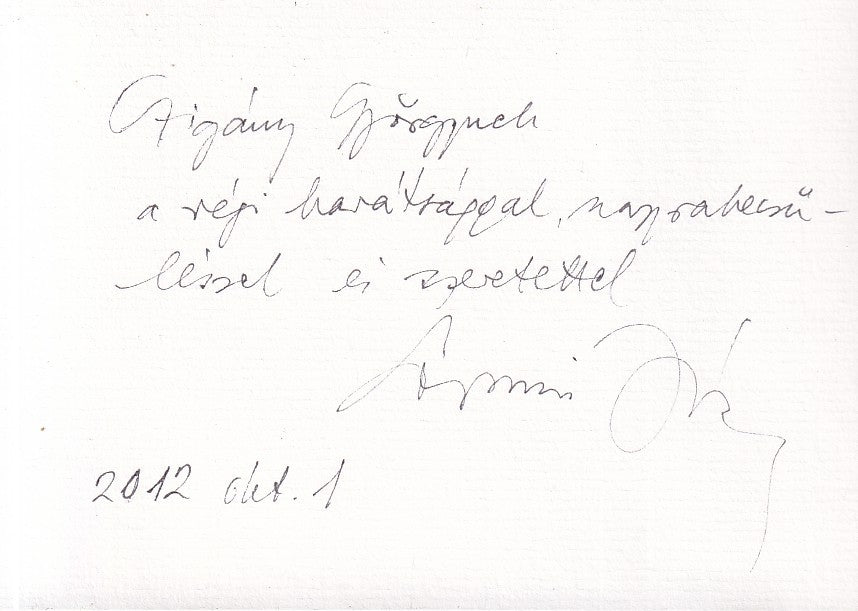 Czigány Györgynek
a régi barátsággal, nagyrabecsü-
léssel és szeretettel
2012 okt. 1